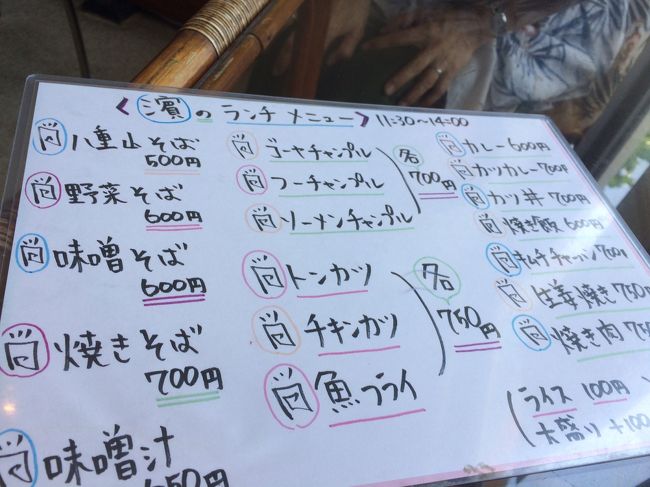 〈濱のランチメニュー〉 11:30〜14:00
八重山そば
500円
野菜そば
600円
味噌そば
600円
焼きそば
700円
味噌汁
650円
ゴーヤチャンプル
フーチャンプル
ソーメンチャンプル
各
700円
トンカツ
チキンカツ
魚フライ
各
750円
カレー 600円
カツカレー 700円
カツ丼 700円
焼き飯 600円
キムチチャーハン 700円
生姜焼き 750
焼き肉 75
(ライス 100円
大盛り +100